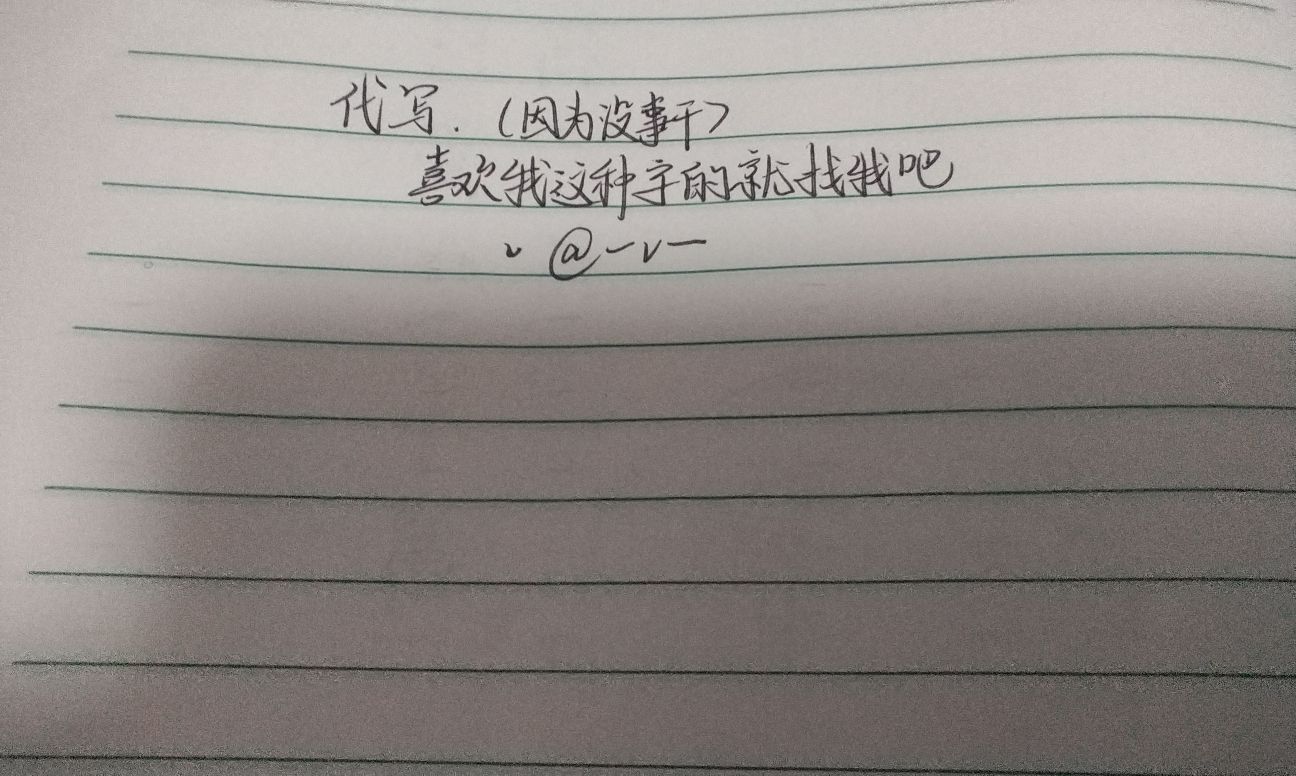 代写.（因为没事干）
喜欢我这种字的就找我吧
v @一v一